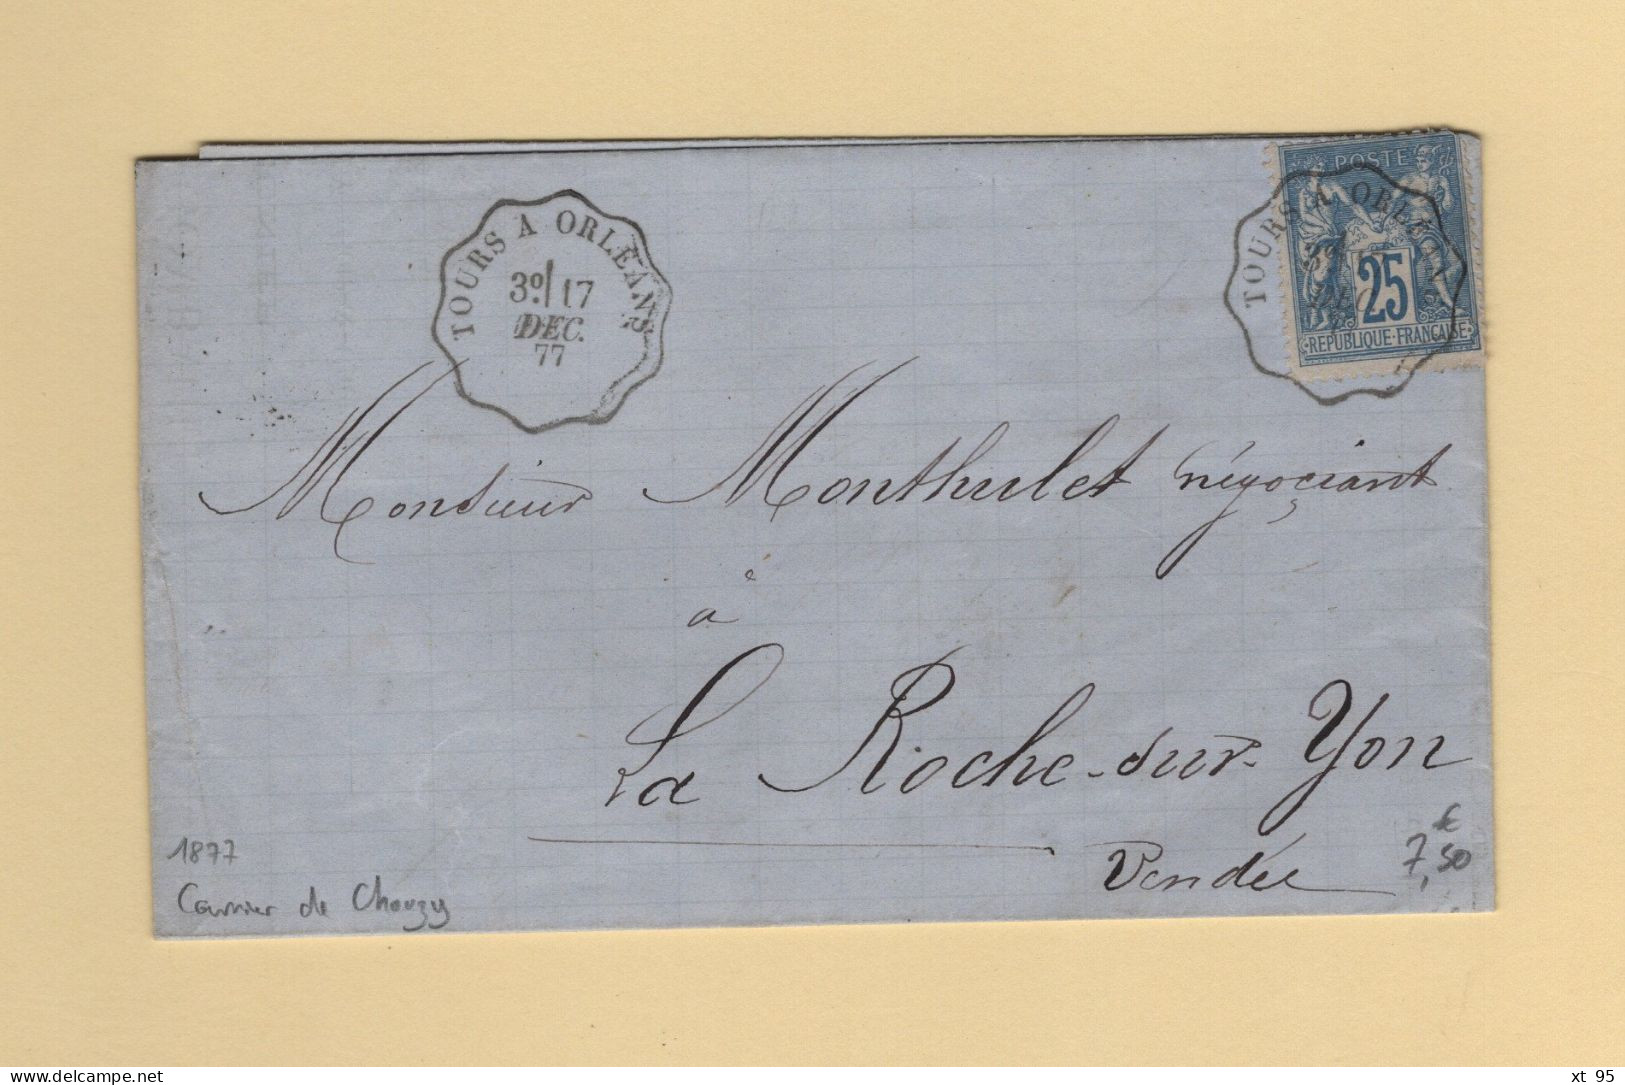 TOURS A ORLEANS
3º/ 17
DEC.
77
POSTE
25
REPUBLIQUE·FRANÇAISE
TOURS A ORLEANS
3º
DEC
Monsieur Monthulet négociant
à
La Roche-sur-Yon
Vendée
€
7,50
1877
Courrier de Chouzy
xt 95